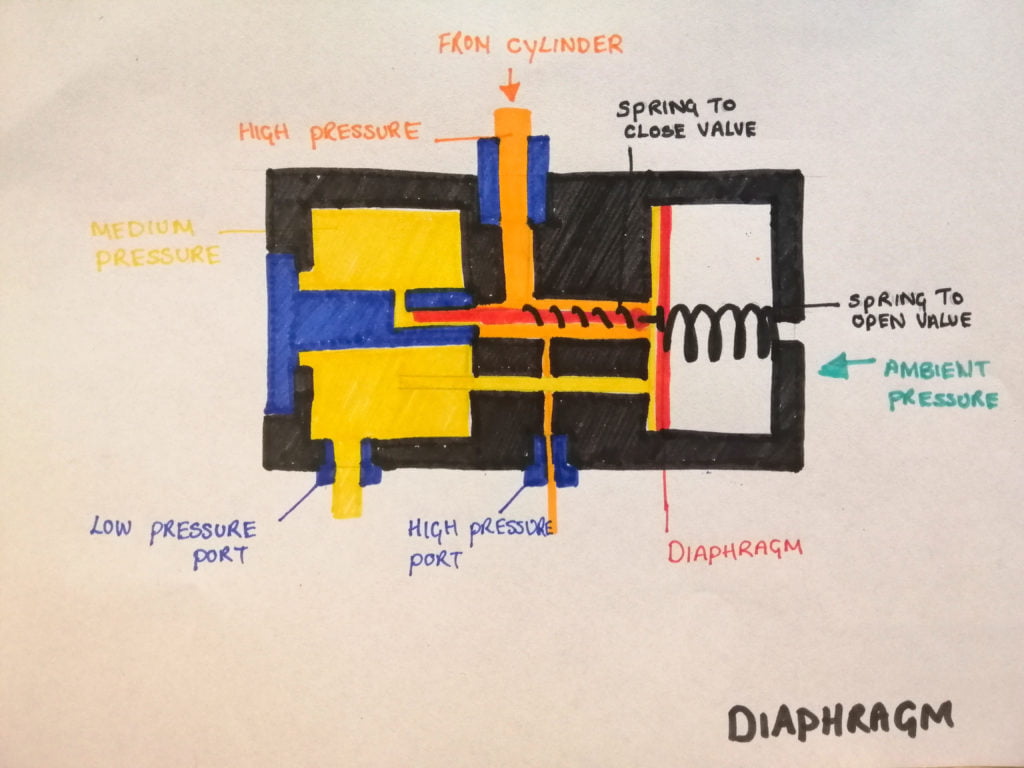 FROM CYLINDER
SPRING TO
CLOSE VALVE
HIGH PRESSURE
MEDIUM
PRESSURE
SPRING TO
OPEN VALVE
AMBIENT
PRESSURE
LOW PRESSURE
PORT
HIGH PRESSURE
PORT
DIAPHRAGM
DIAPHRAGM